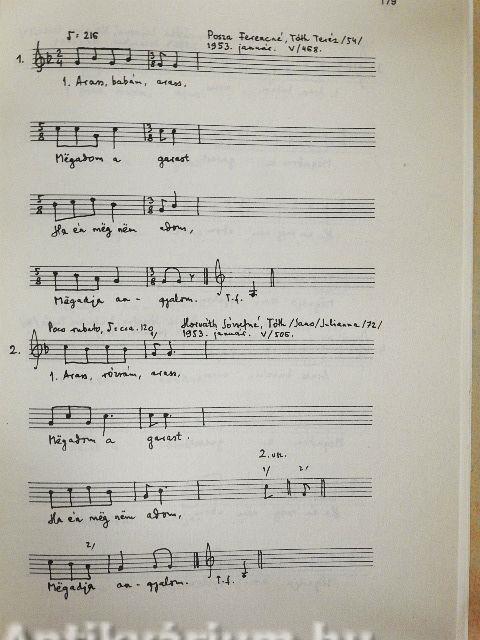 179
♪= 216
Posza Ferencné, Tóth Teréz /54/
1953. január. V/468.
1.
1. Arass, babám, arass,
Mëgadom a garast
Ha én még nëm adom,
Mëgadja an- gyalom. T.f.
Poco rubato, ♪=cca. 120
Horváth Józsefné, Tóth /Sass/ Julianna /72/
1953. január. V/505.
1/
2.
1. Arass, rózsám, arass,
Mëgadom a garast.
2. vsz.
1/ 2/
Ha én még nëm adom,
2/
Mëgadja an- gyalom. T.f.
Antikvárium.hu